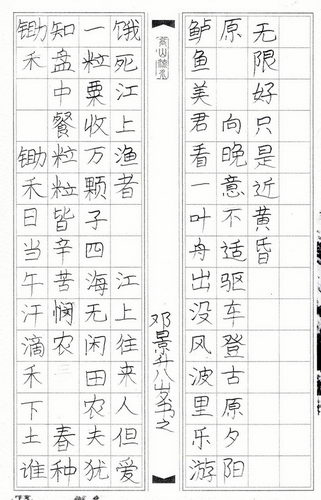 锄禾 锄禾日当午汗滴禾下土谁
知盘中餐粒粒皆辛苦 悯农 春种
一粒粟收万颗子四海无闲田农夫犹
饿死江上渔者 江上往来人但爱
邓景升八山书之
鲈鱼美君看一叶舟出没风波里乐游
原 向晚意不适驱车登古原夕阳
无限好只是近黄昏